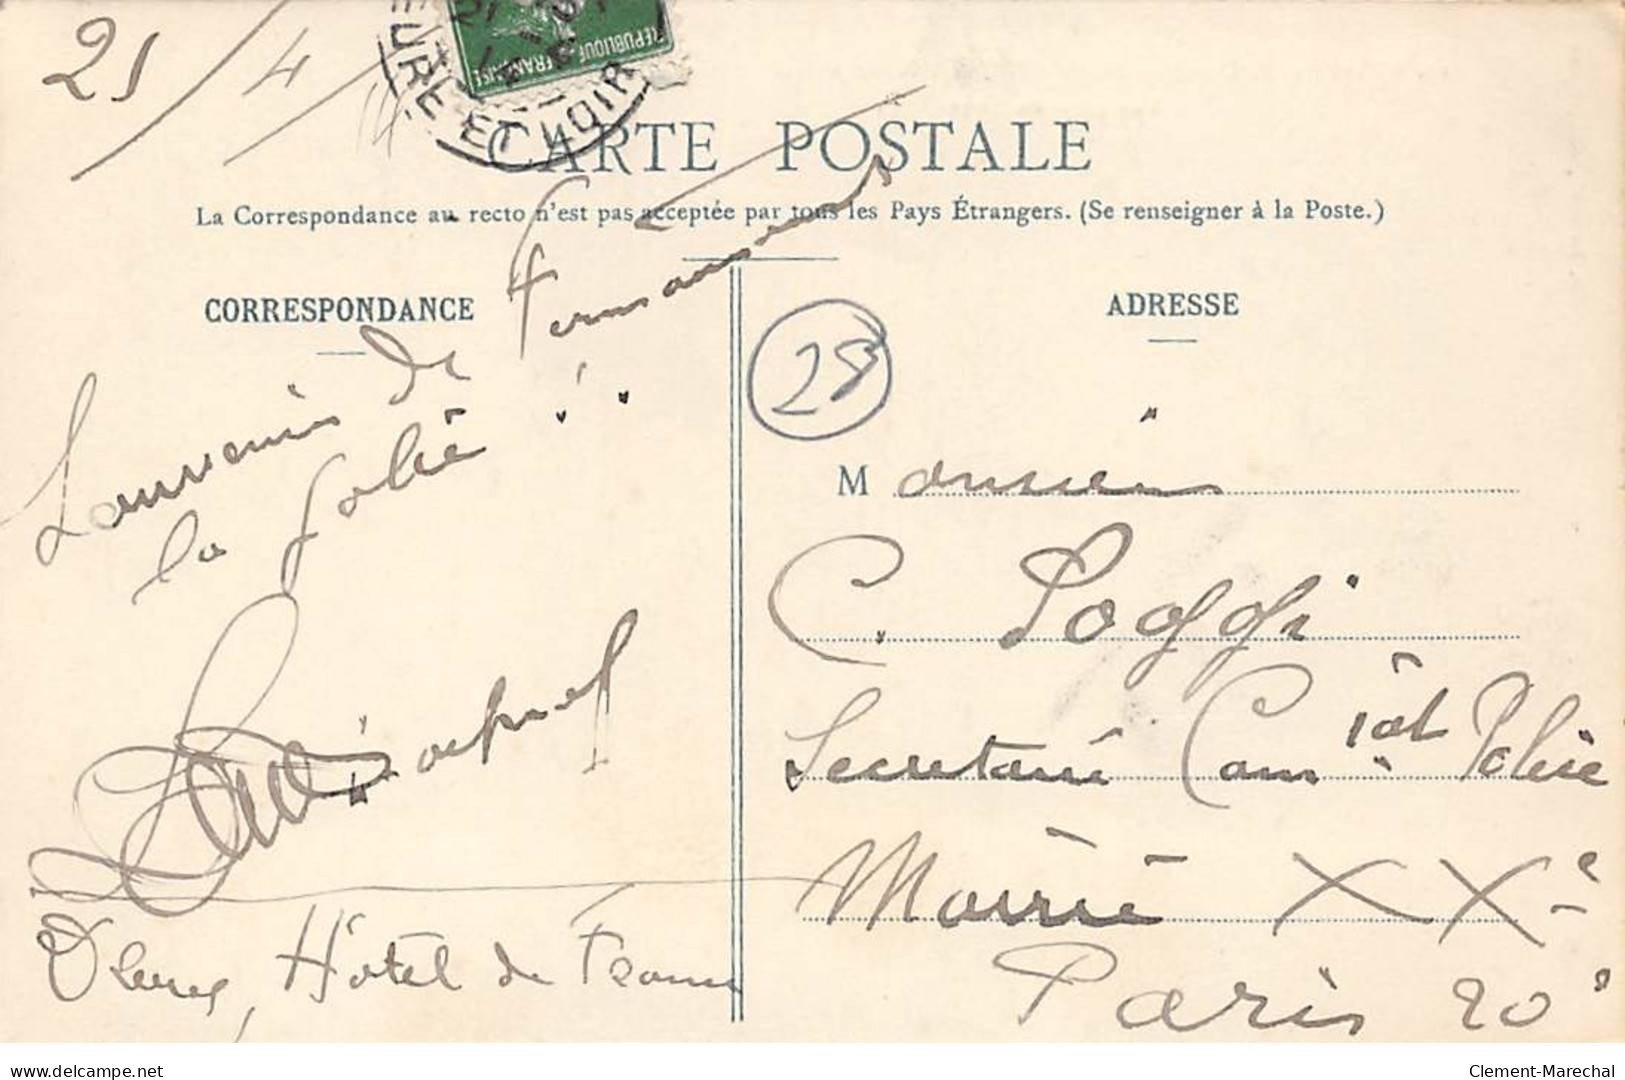 21/4
EURE ET LOIR
REPUBLIQUE FRANÇAISE
CARTE POSTALE
La Correspondance au recto n'est pas acceptée par tous les Pays Étrangers. (Se renseigner à la Poste.)
CORRESPONDANCE
Souvenir de
la folie
Hôtel de France
ADRESSE
28
Monsieur
C. Poggi
Secretaire Com iat Police
Mairie XXe
Paris 20e
delcampe.net
Clement-Marechal